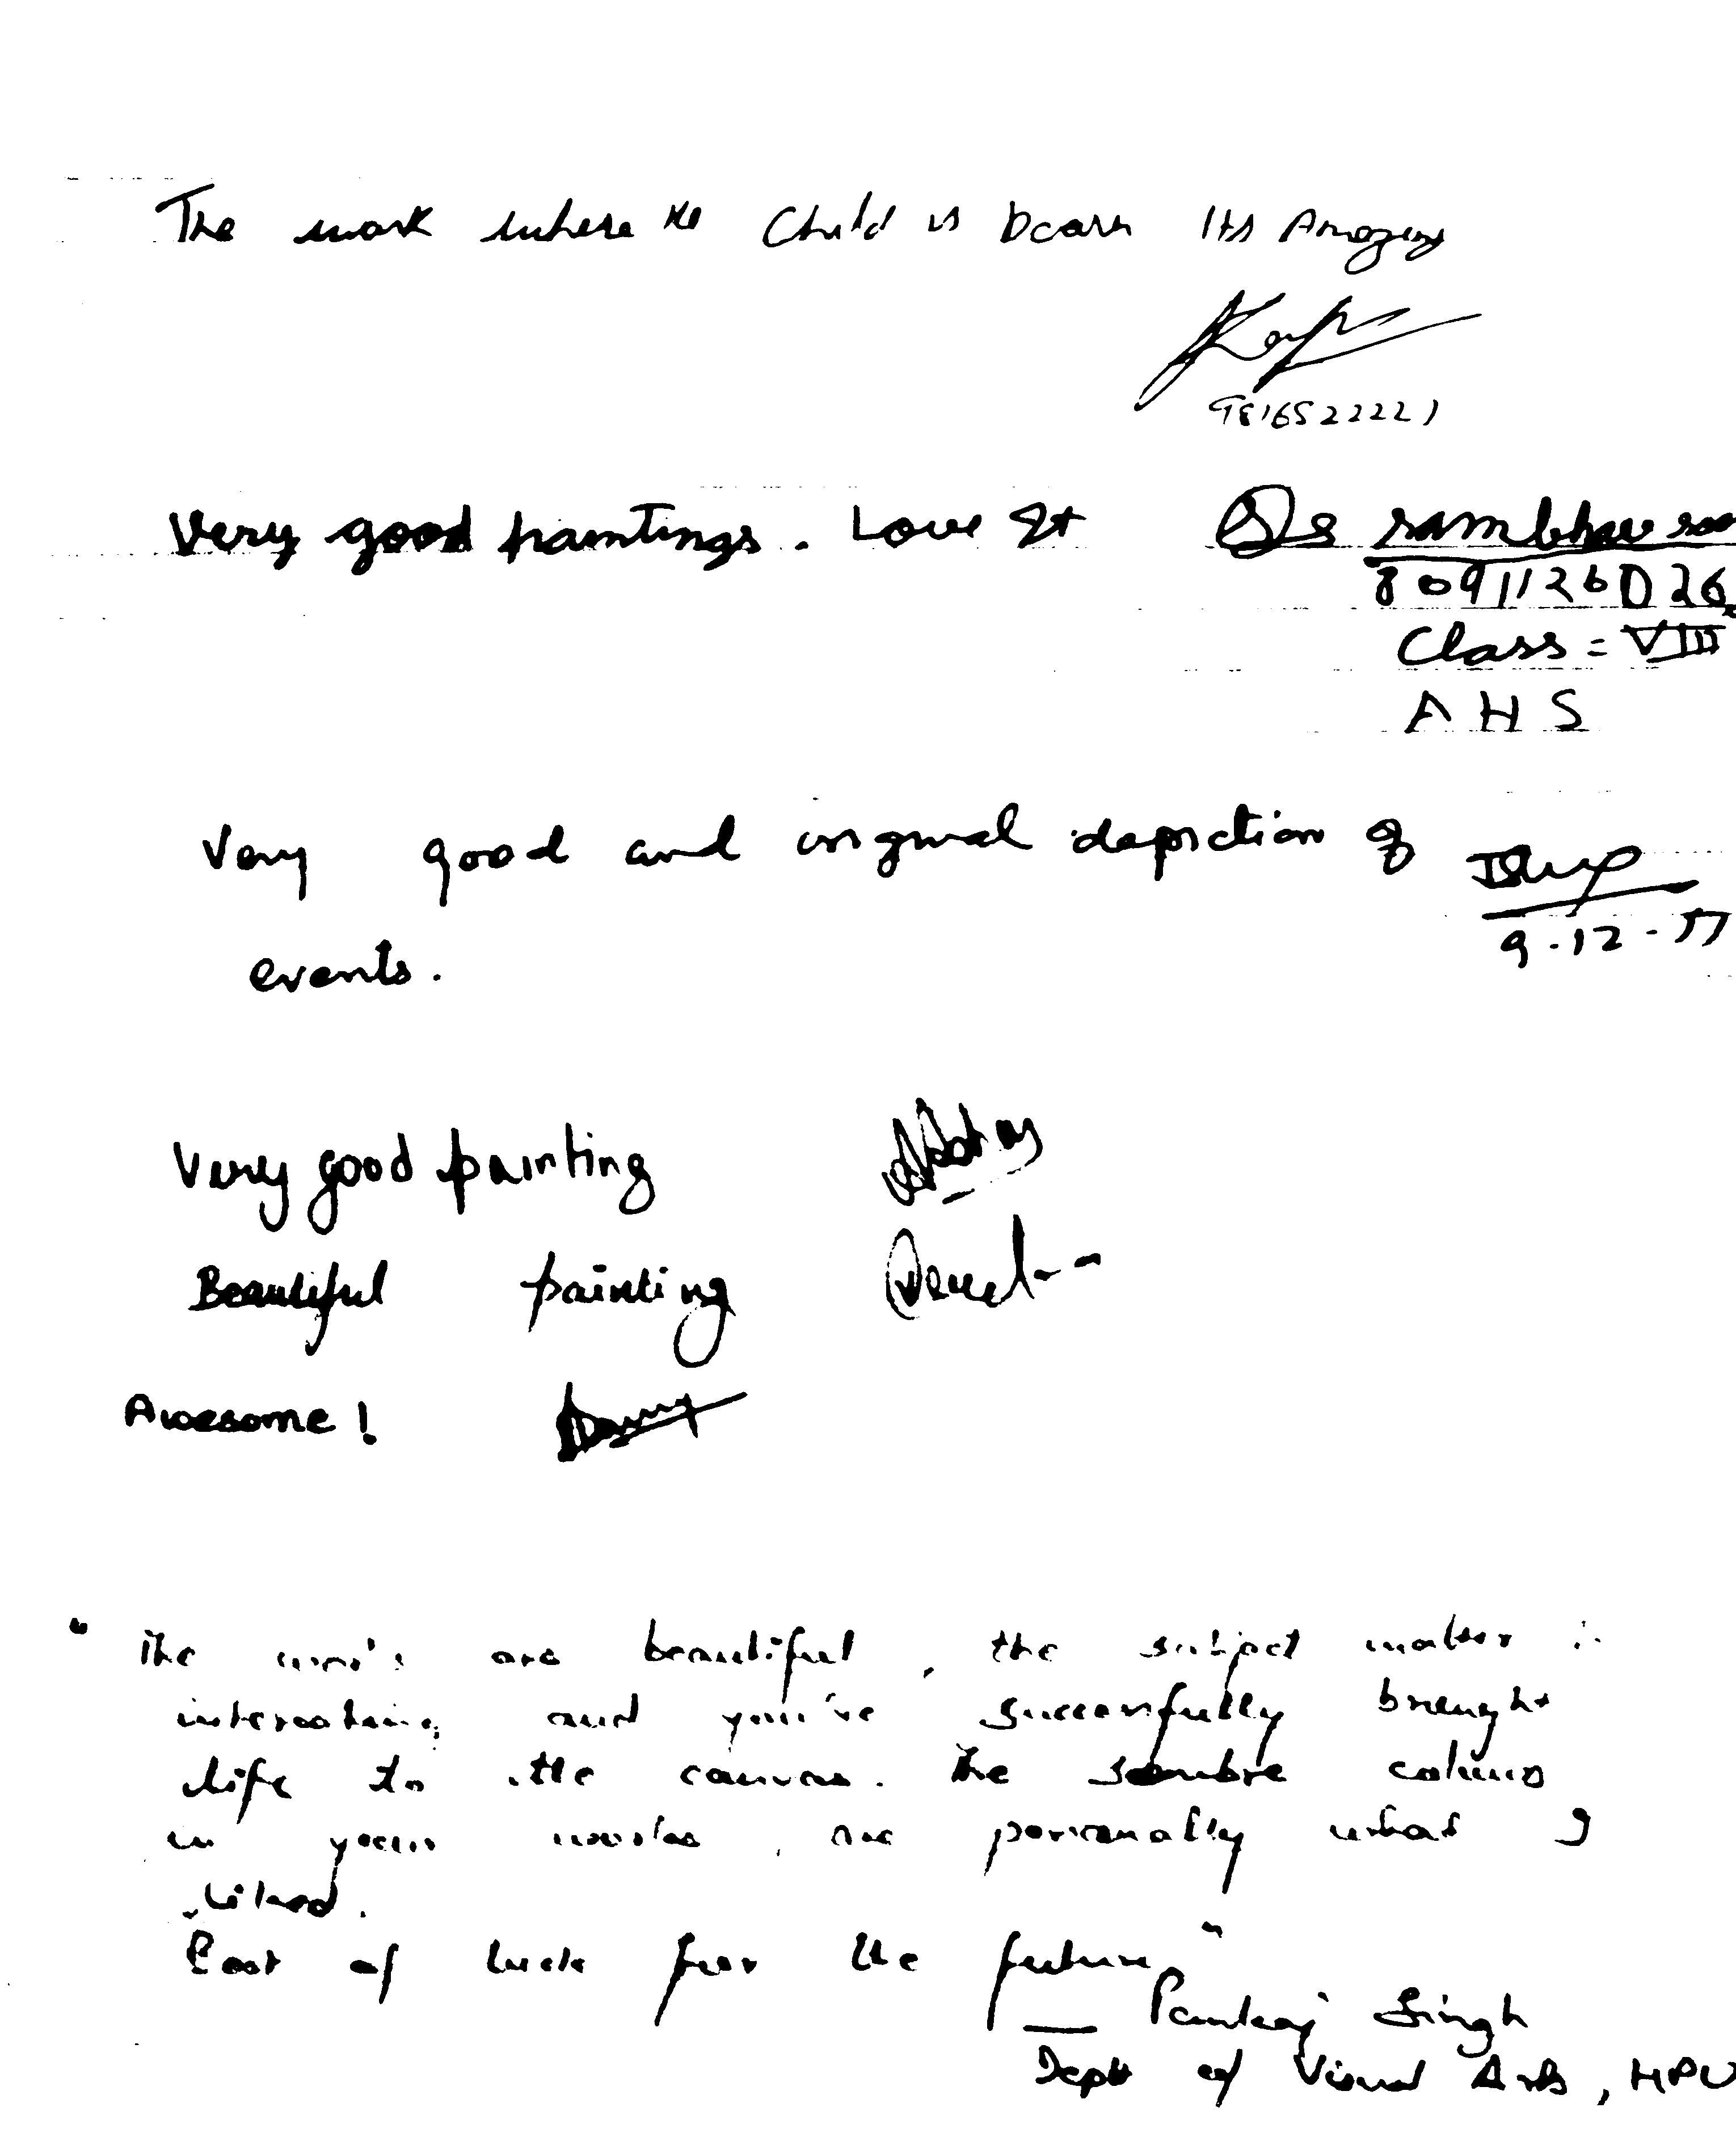 The work where the Child is born Its Amazing
9816522221
Very good paintings. Love It
sambhav
8091126026
Class = VIII
AHS
Very good and original depiction of
9-12-17
events.
Very good painting
Beautiful painting
Awesome!
"The works are beautiful, the subject matter is
interesting and you've successfully brought
life to the canvas. The sombre colours
in your works, are personally what I
liked.
Best of luck for the future"
— Pankaj Singh
Dept of Visual Arts, HPU